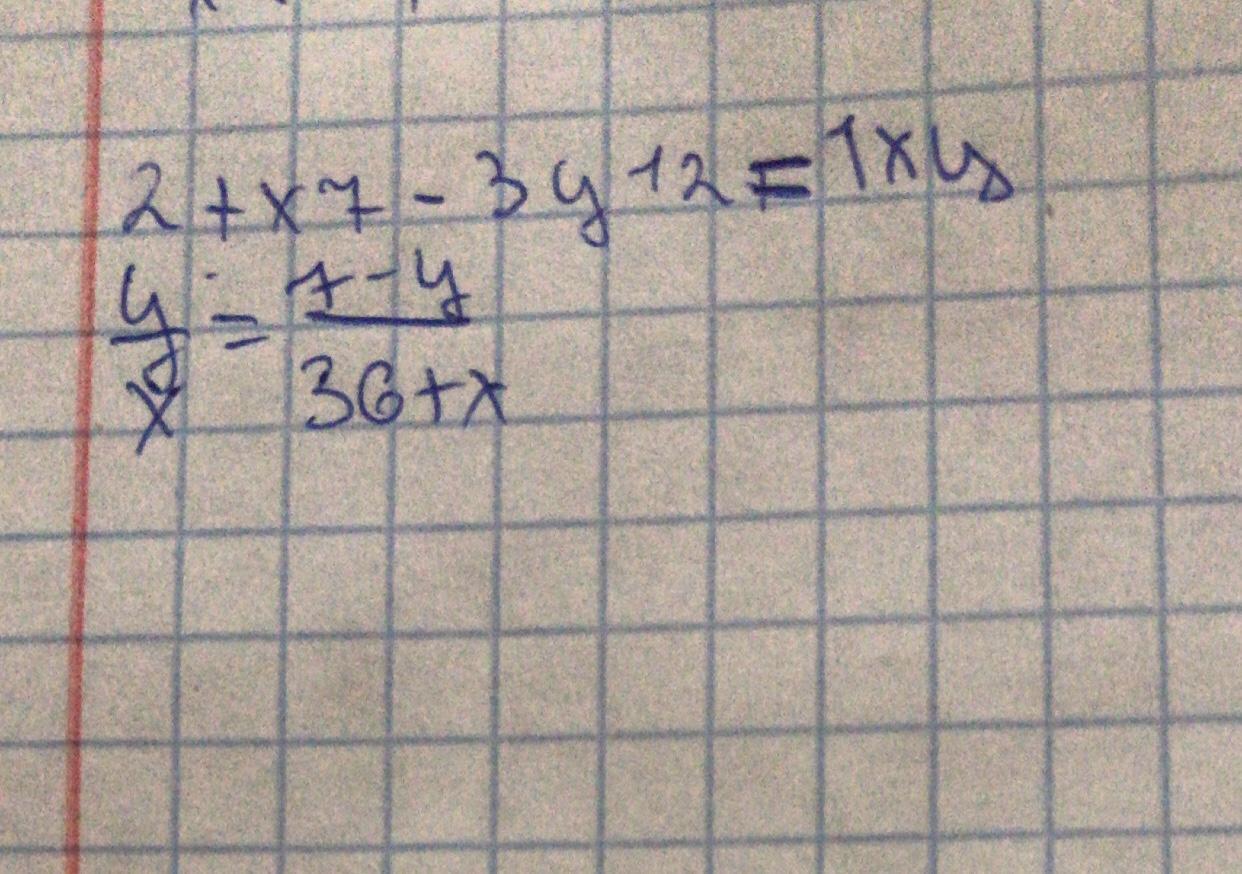 2+x7-3y+2=1xy
y/x = 7-y/36+x